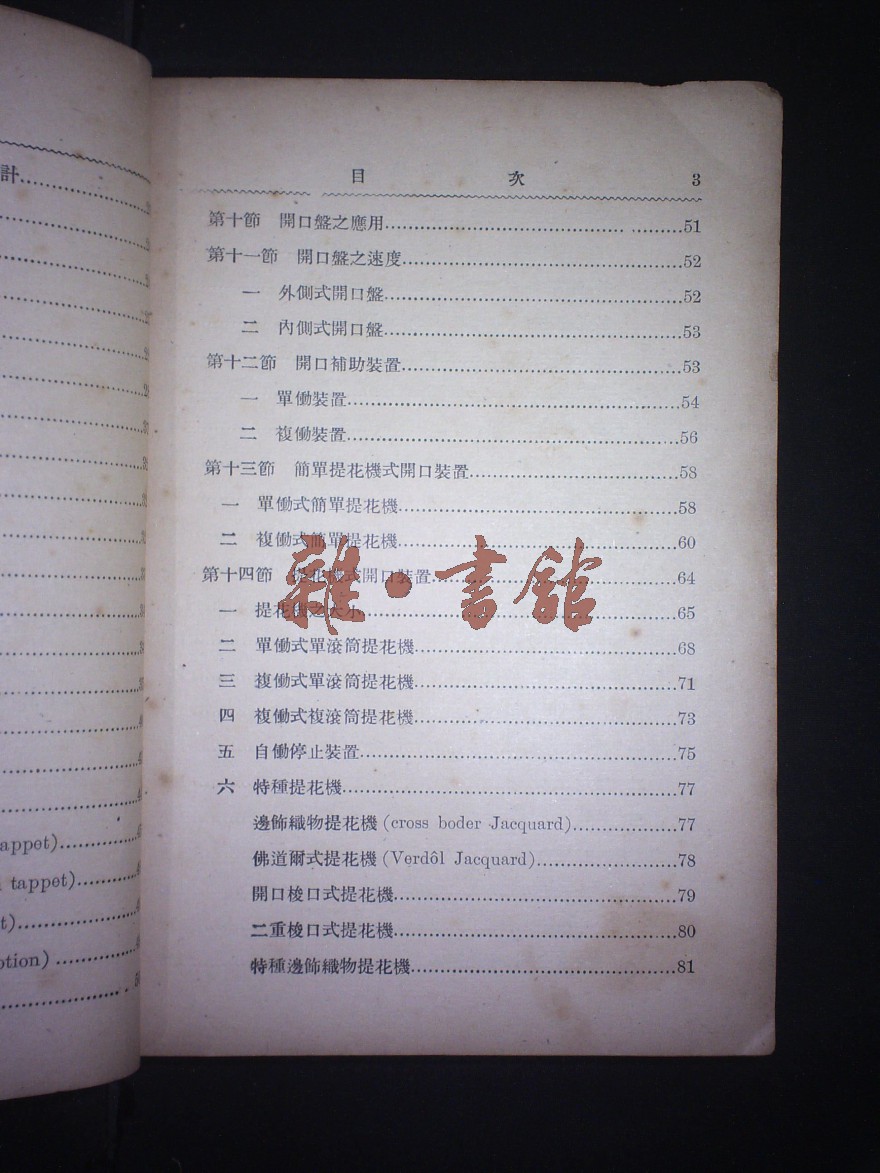 計
appet)
tappet)
t)
otion)
目 次 3
第十節 開口盤之應用 51
第十一節 開口盤之速度 52
一 外側式開口盤 52
二 內側式開口盤 53
第十二節 開口補助裝置 53
一 單働裝置 54
二 複働裝置 56
第十三節 簡單提花機式開口裝置 58
一 單働式簡單提花機 58
二 複働式簡單提花機 60
第十四節 提花機式開口裝置 64
一 提花機之大小 65
二 單働式單滾筒提花機 68
三 複働式單滾筒提花機 71
四 複働式複滾筒提花機 73
五 自働停止裝置 75
六 特種提花機 77
邊飾織物提花機(cross boder Jacquard) 77
佛道爾式提花機(Verdôl Jacquard) 78
開口梭口式提花機 79
二重梭口式提花機 80
特種邊飾織物提花機 81
雜·書館